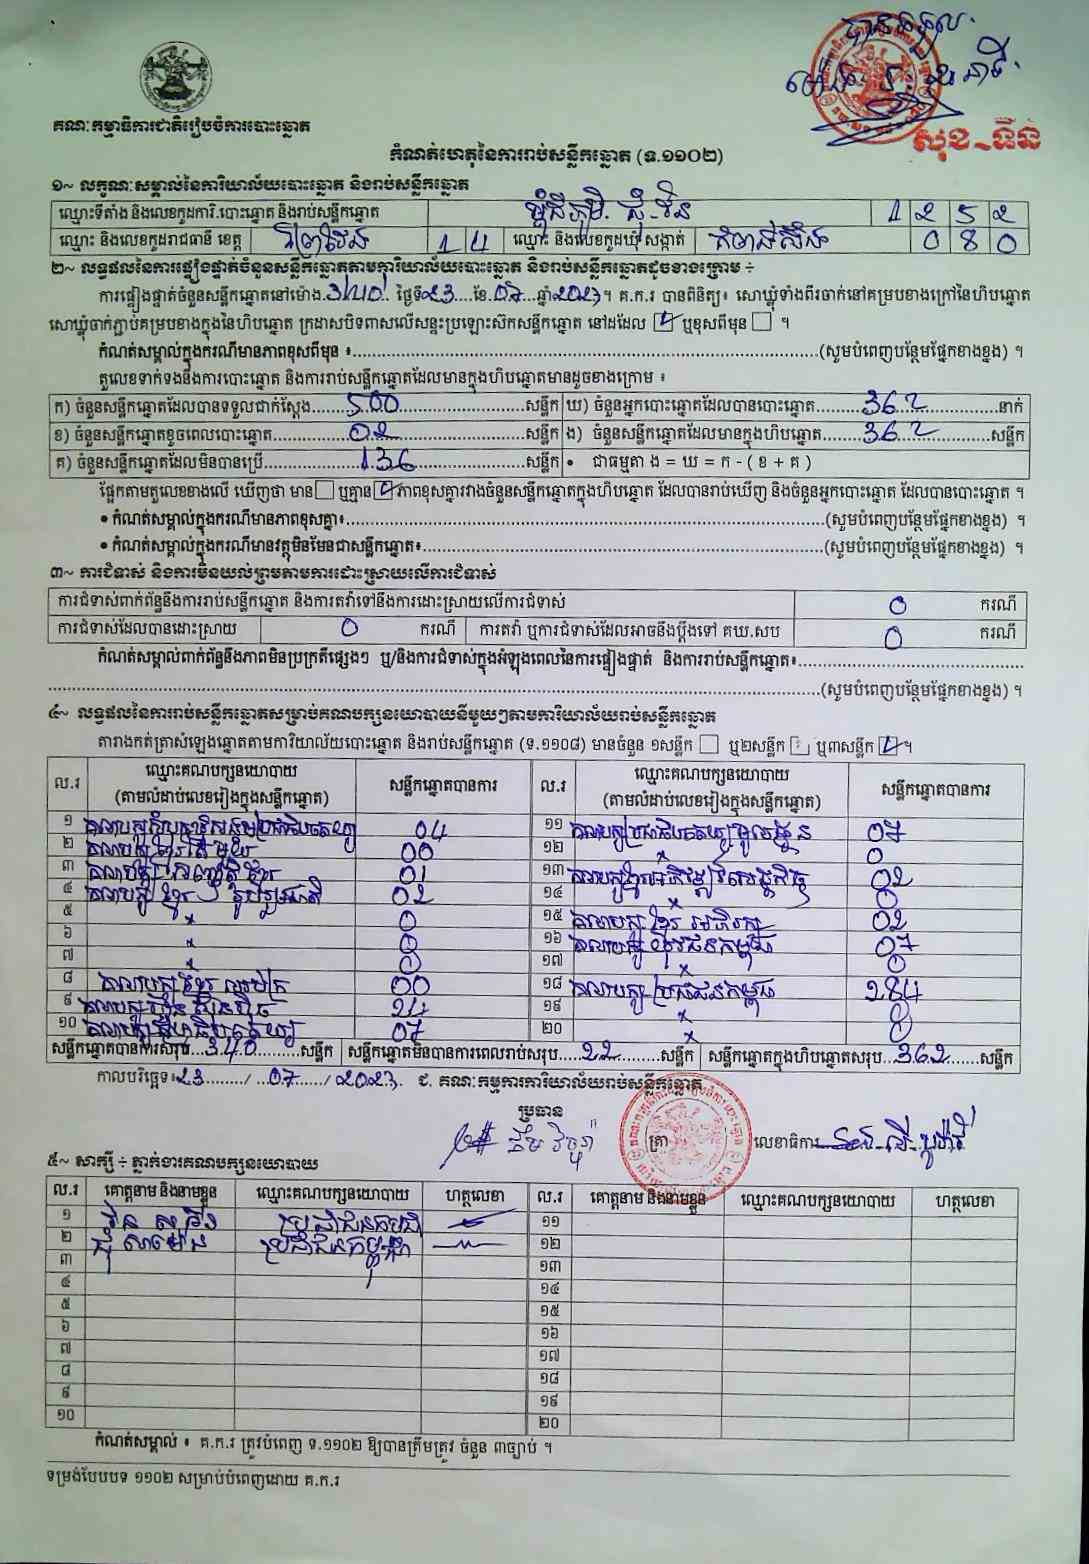 បានទទួល
សុខ-ទីន
គណៈកម្មាធិការជាតិរៀបចំការបោះឆ្នោត
កំណត់ហេតុនៃការរាប់សន្លឹកឆ្នោត (ទ.១១០២)
១~ លក្ខណៈសម្គាល់នៃការិយាល័យបោះឆ្នោត និងរាប់សន្លឹកឆ្នោត
ឈ្មោះទីតាំង និងលេខកូដការិ.បោះឆ្នោត និងរាប់សន្លឹកឆ្នោត 1 2 5 2
ឈ្មោះ និងលេខកូដរាជធានី ខេត្ត ព្រៃវែង 1 4 ឈ្មោះ និងលេខកូដឃុំ សង្កាត់ 0 8 0
២~ លទ្ធផលនៃការផ្ទៀងផ្ទាត់ចំនួនសន្លឹកឆ្នោតតាមការិយាល័យបោះឆ្នោត និងរាប់សន្លឹកឆ្នោតដូចខាងក្រោម ÷
ការផ្ទៀងផ្ទាត់ចំនួនសន្លឹកឆ្នោតនៅម៉ោង 3:40 ថ្ងៃទី 23 ខែ 07 ឆ្នាំ 2023។ គ.ក.រ បានពិនិត្យ៖ សោឃ្លុំទាំងពីរចាក់នៅគម្របខាងក្រៅនៃហិបឆ្នោត
សោឃ្លុំចាក់ភ្ជាប់គម្របខាងក្នុងនៃហិបឆ្នោត ក្រដាសបិទពាសលើសន្ទះប្រឡោះស៊កសន្លឹកឆ្នោត នៅដដែល ☑ ឬខុសពីមុន ☐ ។
កំណត់សម្គាល់ក្នុងករណីមានភាពខុសពីមុន ៖ (សូមបំពេញបន្ថែមផ្នែកខាងខ្នង) ។
តួលេខទាក់ទងនឹងការបោះឆ្នោត និងការរាប់សន្លឹកឆ្នោតដែលមានក្នុងហិបឆ្នោតមានដូចខាងក្រោម ៖
ក) ចំនួនសន្លឹកឆ្នោតដែលបានទទួលជាក់ស្តែង 500 សន្លឹក ឃ) ចំនួនអ្នកបោះឆ្នោតដែលបានបោះឆ្នោត 362 នាក់
ខ) ចំនួនសន្លឹកឆ្នោតខូចពេលបោះឆ្នោត 02 សន្លឹក ង) ចំនួនសន្លឹកឆ្នោតដែលមានក្នុងហិបឆ្នោត 362 សន្លឹក
គ) ចំនួនសន្លឹកឆ្នោតដែលមិនបានប្រើ 136 សន្លឹក • ជាធម្មតា ង = ឃ = ក - ( ខ + គ )
ផ្អែកតាមតួលេខខាងលើ ឃើញថា មាន ☐ ឬគ្មាន ☑ ភាពខុសគ្នារវាងចំនួនសន្លឹកឆ្នោតក្នុងហិបឆ្នោត ដែលបានរាប់ឃើញ និងចំនួនអ្នកបោះឆ្នោត ដែលបានបោះឆ្នោត ។
• កំណត់សម្គាល់ក្នុងករណីមានភាពខុសគ្នា៖ (សូមបំពេញបន្ថែមផ្នែកខាងខ្នង) ។
• កំណត់សម្គាល់ក្នុងករណីមានវត្ថុមិនមែនជាសន្លឹកឆ្នោត៖ (សូមបំពេញបន្ថែមផ្នែកខាងខ្នង) ។
៣~ ការជំទាស់ និងការមិនយល់ព្រមតាមការដោះស្រាយលើការជំទាស់
ការជំទាស់ពាក់ព័ន្ធនឹងការរាប់សន្លឹកឆ្នោត និងការតវ៉ាទៅនឹងការដោះស្រាយលើការជំទាស់ 0 ករណី
ការជំទាស់ដែលបានដោះស្រាយ 0 ករណី ការតវ៉ា ឬការជំទាស់ដែលអាចនឹងប្តឹងទៅ គឃ.សប 0 ករណី
កំណត់សម្គាល់ពាក់ព័ន្ធនឹងភាពមិនប្រក្រតីផ្សេងៗ ឬ/និងការជំទាស់ក្នុងអំឡុងពេលនៃការផ្ទៀងផ្ទាត់ និងការរាប់សន្លឹកឆ្នោត៖
(សូមបំពេញបន្ថែមផ្នែកខាងខ្នង) ។
៤~ លទ្ធផលនៃការរាប់សន្លឹកឆ្នោតសម្រាប់គណបក្សនយោបាយនីមួយៗតាមការិយាល័យរាប់សន្លឹកឆ្នោត
តារាងកត់ត្រាសំឡេងឆ្នោតតាមការិយាល័យបោះឆ្នោត និងរាប់សន្លឹកឆ្នោត (ទ.១១០៨) មានចំនួន ១សន្លឹក ☐ ឬ២សន្លឹក ☐ ឬ៣សន្លឹក ☑ ។
ល.រ ឈ្មោះគណបក្សនយោបាយ (តាមលំដាប់លេខរៀងក្នុងសន្លឹកឆ្នោត) សន្លឹកឆ្នោតបានការ ល.រ ឈ្មោះគណបក្សនយោបាយ (តាមលំដាប់លេខរៀងក្នុងសន្លឹកឆ្នោត) សន្លឹកឆ្នោតបានការ
១ 04 ១១ គណបក្សប្រជាធិបតេយ្យមូលដ្ឋាន 07
២ 00 ១២ x 0
៣ 01 ១៣ 02
៤ គណបក្សខ្មែររួបរួមជាតិ 02 ១៤ x 0
៥ x 0 ១៥ គណបក្សខ្មែរអភិរក្ស 02
៦ x 0 ១៦ គណបក្សយុវជនកម្ពុជា 07
៧ x 0 ១៧ x 0
៨ 00 ១៨ គណបក្សប្រជាជនកម្ពុជា 284
៩ គណបក្សហ្វ៊ុនស៊ិនប៉ិច 24 ១៩ x 0
១០ 07 ២០ x 0
សន្លឹកឆ្នោតបានការសរុប 340 សន្លឹក សន្លឹកឆ្នោតមិនបានការពេលរាប់សរុប 22 សន្លឹក សន្លឹកឆ្នោតក្នុងហិបឆ្នោតសរុប 362 សន្លឹក
កាលបរិច្ឆេទ៖ 23 / 07 / 2023 ជ. គណៈកម្មការការិយាល័យរាប់សន្លឹកឆ្នោត
ប្រធាន
ត្រា លេខាធិការ
៥~ សាក្សី ÷ ភ្នាក់ងារគណបក្សនយោបាយ
ល.រ គោត្តនាម និងនាមខ្លួន ឈ្មោះគណបក្សនយោបាយ ហត្ថលេខា ល.រ គោត្តនាម និងនាមខ្លួន ឈ្មោះគណបក្សនយោបាយ ហត្ថលេខា
១ ប្រជាជនកម្ពុជា ១១
២ ប្រជាជនកម្ពុជា ១២
៣ ១៣
៤ ១៤
៥ ១៥
៦ ១៦
៧ ១៧
៨ ១៨
៩ ១៩
១០ ២០
កំណត់សម្គាល់ ៖ គ.ក.រ ត្រូវបំពេញ ទ.១១០២ ឱ្យបានត្រឹមត្រូវ ចំនួន ៣ច្បាប់ ។
ទម្រង់បែបបទ ១១០២ សម្រាប់បំពេញដោយ គ.ក.រ